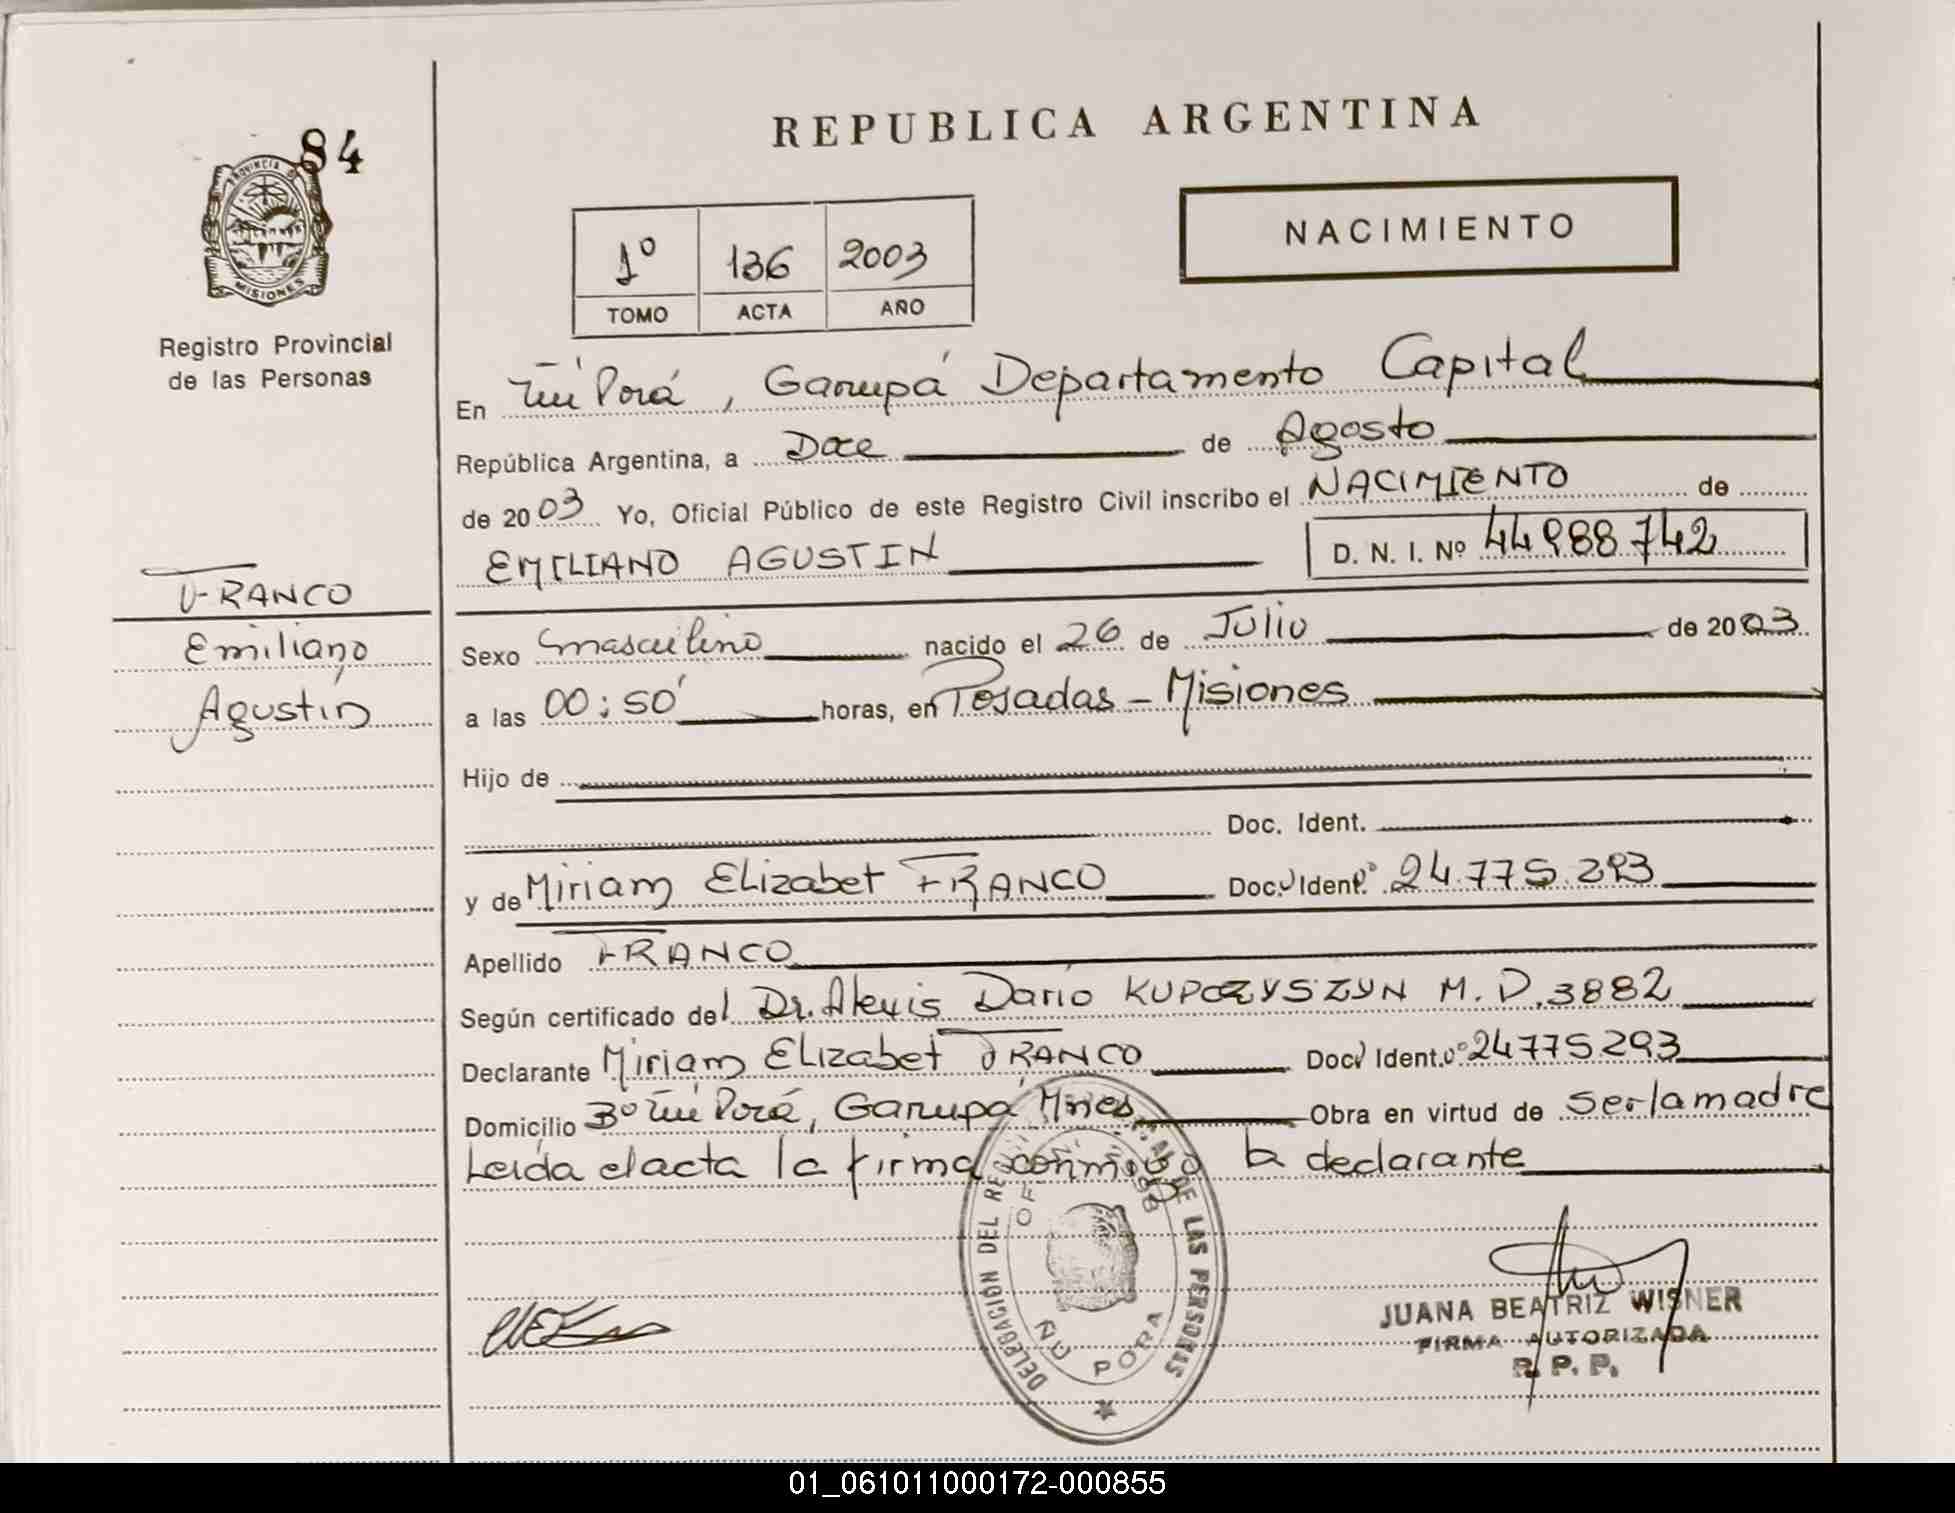 84
REPUBLICA ARGENTINA
PROVINCIA DE
MISIONES
Registro Provincial
de las Personas
1º 136 2003
TOMO ACTA AÑO
NACIMIENTO
En Ñu Porá, Garupá Departamento Capital
República Argentina, a Doce de Agosto
de 2003 Yo, Oficial Público de este Registro Civil inscribo el NACIMIENTO de
EMILIANO AGUSTIN D. N. I. Nº 44988742
FRANCO
Emiliano
Agustin
Sexo masculino nacido el 26 de Julio de 2003
a las 00:50' horas, en Posadas - Misiones
Hijo de
Doc. Ident.
y de Miriam Elizabet FRANCO Doc. Ident. 24.775.293
Apellido FRANCO
Según certificado del Dr. Alexis Dario KUPCZYSZYN M.P. 3882
Declarante Miriam Elizabet FRANCO Doc. Ident. 24775293
Domicilio Bº Ñu Porá, Garupá Mnes Obra en virtud de ser la madre
Leida el acta la firma conmigo la declarante
DELEGACION DEL DE LAS PERSONAS
ÑU PORA
JUANA BEATRIZ WISNER
FIRMA AUTORIZADA
R. P. P.
01_061011000172-000855